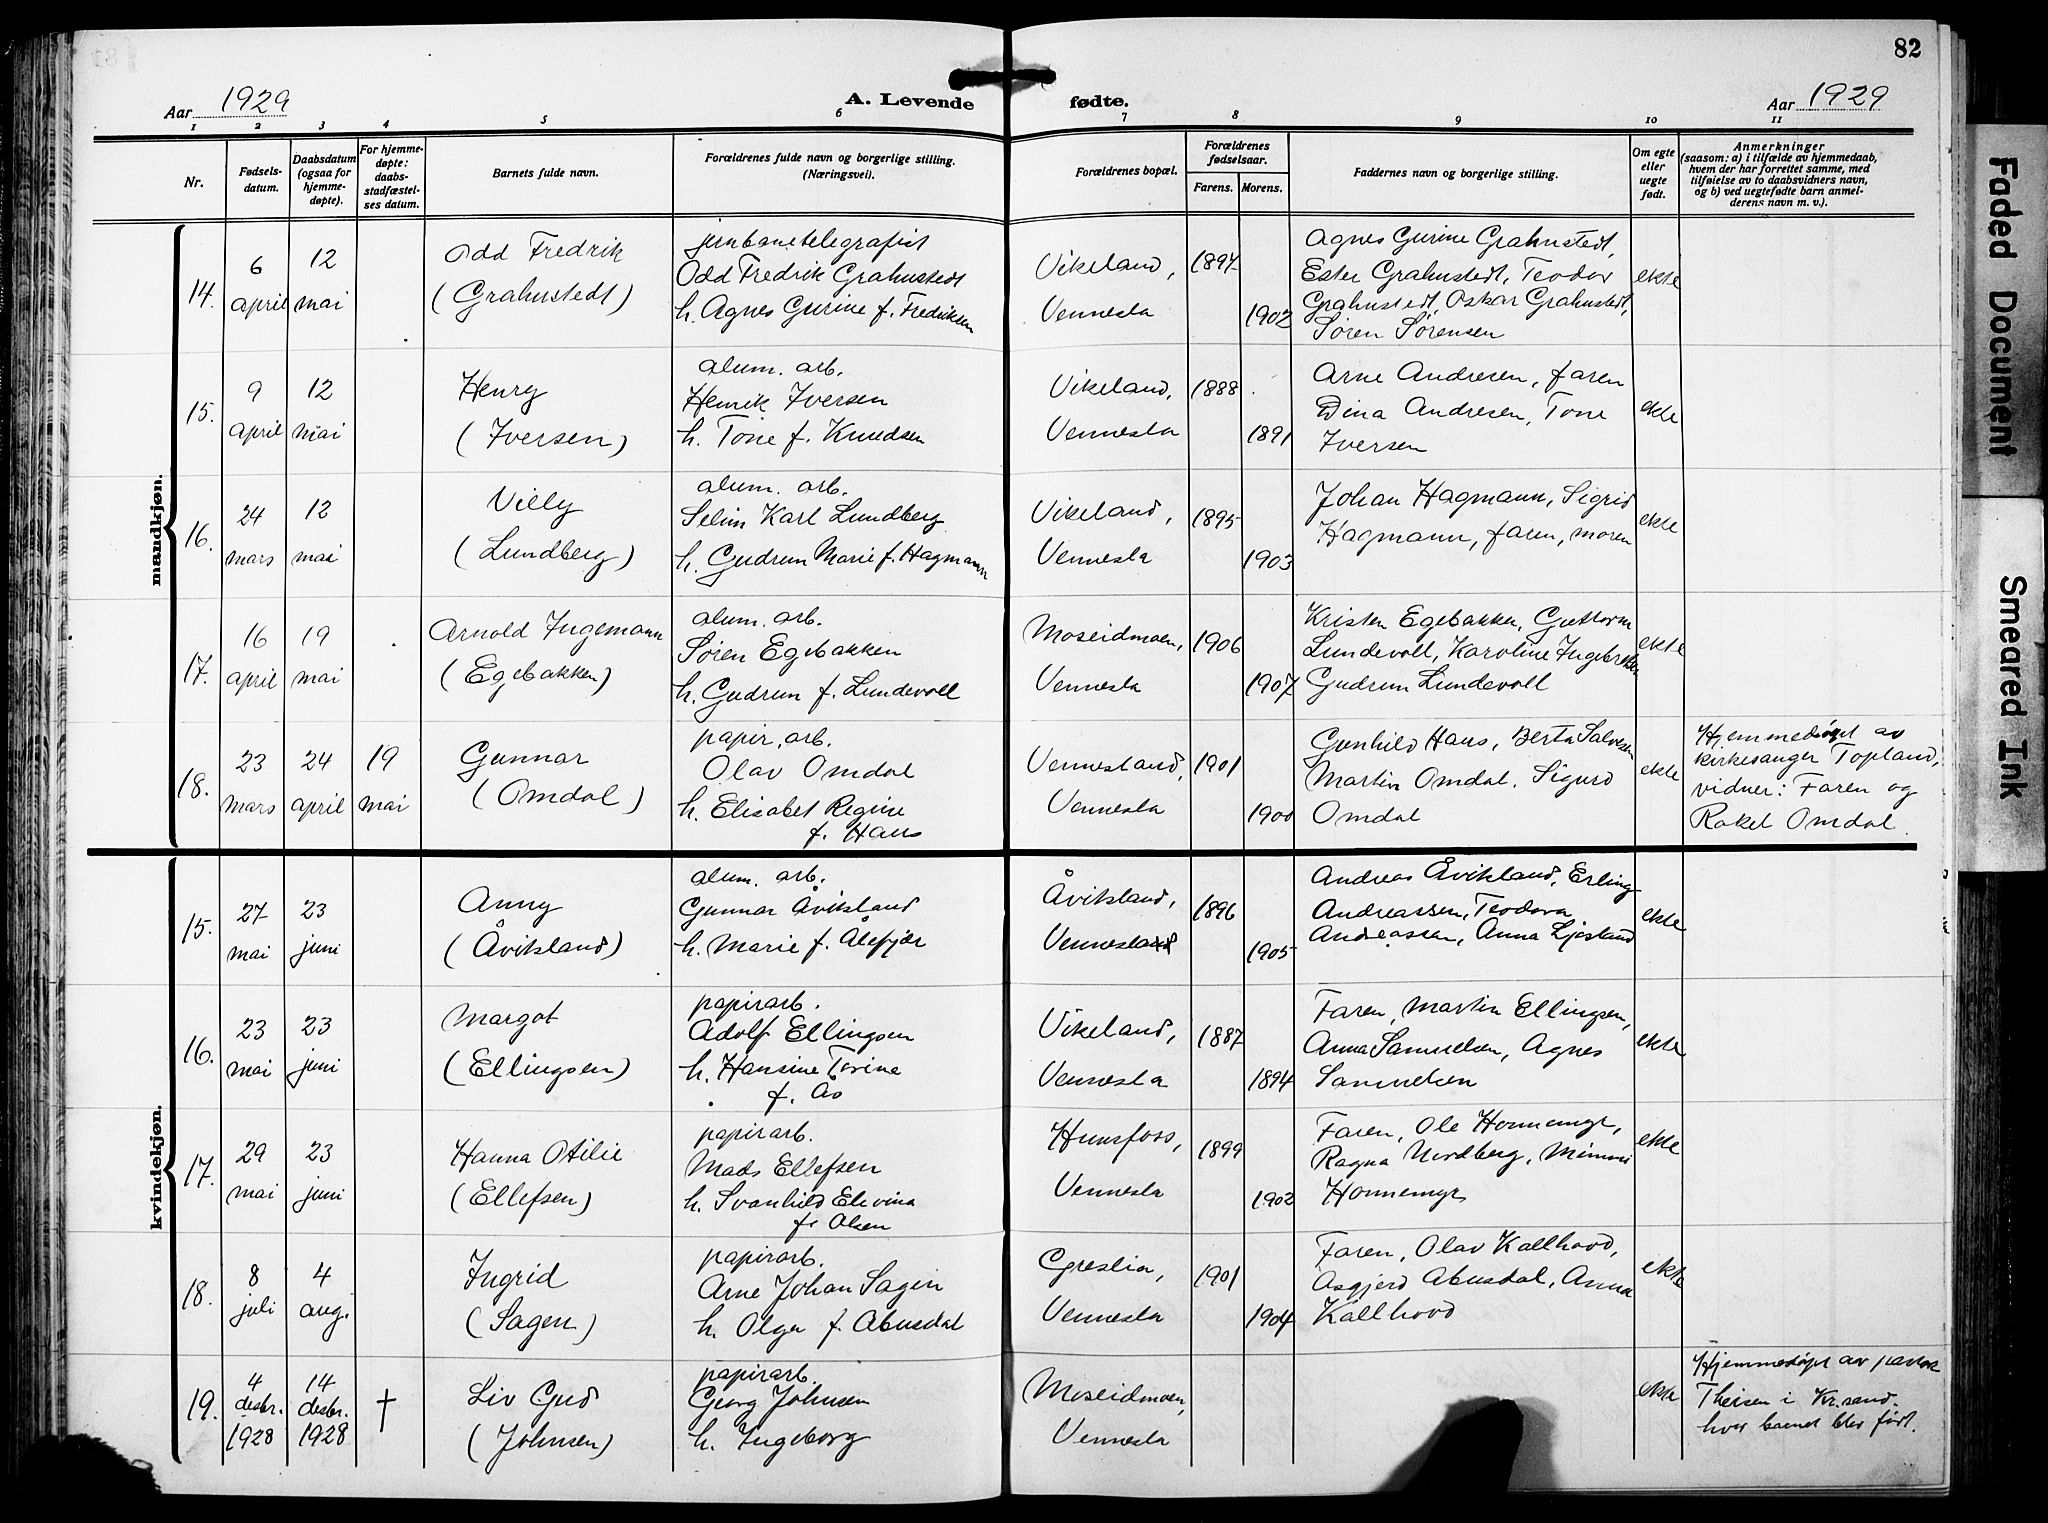 82
Aar 1929
A. Levende fødte.
Aar 1929
1 2 3 4 5 6 7 8 9 10 11
Nr.
Fødsels-
datum.
Daabsdatum
(ogsaa for
hjemme-
døpte).
For hjemme-
døpte:
daabs-
stadfæstel-
ses datum.
Barnets fulde navn.
Forældrenes fulde navn og borgerlige stilling.
(Næringsvei).
Forældrenes bopæl.
Forældrenes
fødselsaar.
Farens. Morens.
Faddernes navn og borgerlige stilling.
Om egte
eller
uegte
født.
Anmerkninger
(saasom: a) i tilfælde av hjemmedaab,
hvem der har forrettet samme, med
tilføielse av to daabsvidners navn,
og b) ved uegtefødte barn anmel-
derens navn m. v.).
mandkjøn.
14.
6
april
12
mai
Odd Fredrik
(Grahnstedt)
jernbanetelegrafist
Odd Fredrik Grahnstedt
h. Agnes Gurine f. Fredriksen
Vikeland,
Vennesla
1897
1902
Agnes Gurine Grahnstedt,
Ester Grahnstedt, Teodor
Grahnstedt, Oskar Grahnstedt,
Søren Sørensen
ekte
15.
9
april
12
mai
Henry
(Iversen)
alum. arb.
Henrik Iversen
h. Tone f. Knudsen
Vikeland,
Vennesla
1888
1891
Arne Andresen, faren
Dina Andresen, Tone
Iversen
ekte
16.
24
mars
12
mai
Villy
(Lundberg)
alum. arb.
Selim Karl Lundberg
h. Gudrun Marie f. Hagmann
Vikeland,
Vennesla
1895
1903
Johan Hagmann, Sigrid
Hagmann, faren, moren
ekte
17.
16
april
19
mai
Arnold Ingemann
(Egebakken)
alum. arb.
Søren Egebakken
h. Gudrun f. Lundevoll
Moseidmoen,
Vennesla
1906
1907
Kristen Egebakken, Guttorm
Lundevoll, Karoline Ingebretsen
Gudrun Lundevoll
ekte
18.
23
mars
24
april
19
mai
Gunnar
(Omdal)
papir. arb.
Olav Omdal
h. Elisabet Regine
f. Haus
Vennesland,
Vennesla
1901
1900
Gunhild Haus, Berta Salvesen
Martin Omdal, Sigurd
Omdal
ekte
Hjemmedøpt av
kirkesanger Topland,
vidner: Faren og
Rakel Omdal.
kvindekjøn.
15.
27
mai
23
juni
Anny
(Åvitsland)
alum. arb.
Gunnar Åvitsland
h. Marie f. Ålefjær
Åvitsland,
Vennesla
1896
1905
Andreas Åvitsland, Erling
Andreassen, Teodora
Andreassen, Anna Ljosland
ekte
16.
23
mai
23
juni
Margot
(Ellingsen)
papirarb.
Adolf Ellingsen
h. Hansine Torine
f. Ås
Vikeland,
Vennesla
1887
1894
Faren, Martin Ellingsen,
Anna Samuelsen, Agnes
Samuelsen
ekte
17.
29
mai
23
juni
Hanna Otilie
(Ellefsen)
papirarb.
Mads Ellefsen
h. Svanhild Elevina
f. Olsen
Hunsfoss,
Vennesla
1899
1902
Faren, Ole Honnemyr,
Ragna Nordberg, Mimmi
Honnemyr
ekte
18.
8
juli
4
aug.
Ingrid
(Sagen)
papirarb.
Arne Johan Sagen
h. Olga f. Abusdal
Greslia,
Vennesla
1901
1904
Faren, Olav Kallhovd,
Asgjerd Abusdal, Anna
Kallhovd
ekte
19.
4
desbr.
1928
14
desbr.
1928
†
Liv Gud
(Johnsen)
papirarb.
Georg Johnsen
h. Ingeborg
Moseidmoen,
Vennesla
ekte
Hjemmedøpt av pastor
Theisen i Kr.sand.
hvor barnet blev født.
Faded Document
Smeared Ink